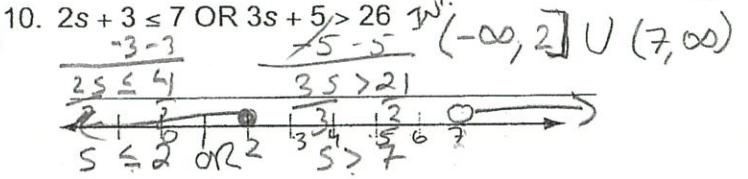 10. 2s + 3 ≤ 7 OR 3s + 5 > 26 IN: (-∞, 2] ∪ (7, ∞)
-3 -3 -5 -5
2s ≤ 4 3s > 21
2 2 3
0 2 3 4 5 6 7
s ≤ 2 OR s > 7